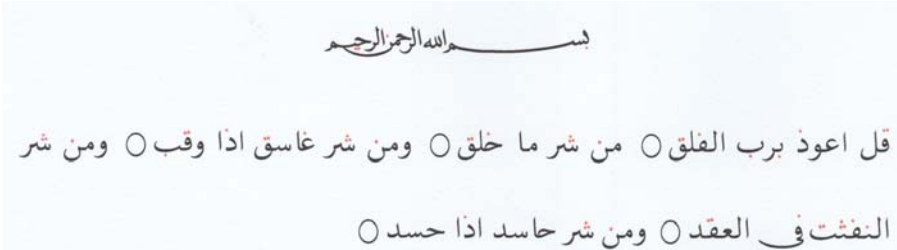 بسم الله الرحمن الرحيم
قل اعوذ برب الفلق ○ من شر ما خلق ○ ومن شر غاسق اذا وقب ○ ومن شر
النفثت في العقد ○ ومن شر حاسد اذا حسد ○